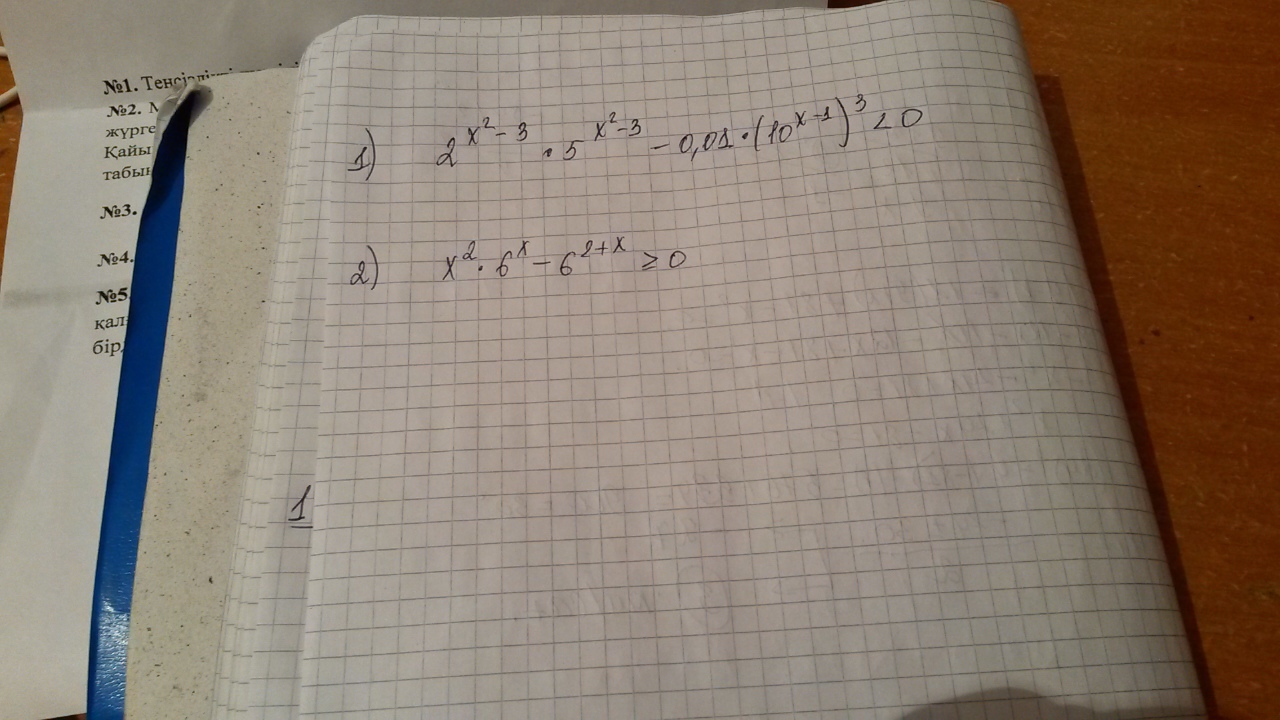 №1.
№2.
жүрге
Қайы
табын
№3.
№4.
№5.
қал
бір
1) 2^{x^2-3} \cdot 5^{x^2-3} - 0,01 \cdot (10^{x-1})^3 < 0
2) x^2 \cdot 6^x - 6^{2+x} ≥ 0
1